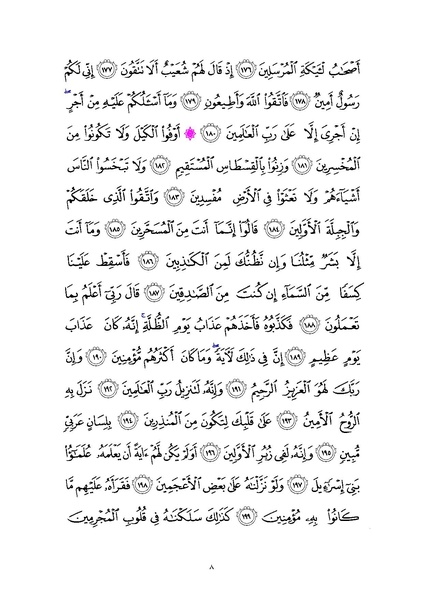 أَصْحَٰبُ لْـَٔيْكَةِ الْمُرْسَلِينَ ١٧٦ إِذْ قَالَ لَهُمْ شُعَيْبٌ أَلَا تَتَّقُونَ ١٧٧ إِنِّي لَكُمْ
رَسُولٌ أَمِينٌ ١٧٨ فَاتَّقُوا اللَّهَ وَأَطِيعُونِ ١٧٩ وَمَا أَسْـَٔلُكُمْ عَلَيْهِ مِنْ أَجْرٍ
إِنْ أَجْرِيَ إِلَّا عَلَىٰ رَبِّ الْعَٰلَمِينَ ١٨٠ أَوْفُوا الْكَيْلَ وَلَا تَكُونُوا مِنَ
الْمُخْسِرِينَ ١٨١ وَزِنُوا بِالْقِسْطَاسِ الْمُسْتَقِيمِ ١٨٢ وَلَا تَبْخَسُوا النَّاسَ
أَشْيَاءَهُمْ وَلَا تَعْثَوْا فِي الْأَرْضِ مُفْسِدِينَ ١٨٣ وَاتَّقُوا الَّذِي خَلَقَكُمْ
وَالْجِبِلَّةَ الْأَوَّلِينَ ١٨٤ قَالُوا إِنَّمَا أَنتَ مِنَ الْمُسَحَّرِينَ ١٨٥ وَمَا أَنتَ
إِلَّا بَشَرٌ مِّثْلُنَا وَإِن نَّظُنُّكَ لَمِنَ الْكَٰذِبِينَ ١٨٦ فَأَسْقِطْ عَلَيْنَا
كِسَفًا مِّنَ السَّمَاءِ إِن كُنتَ مِنَ الصَّٰدِقِينَ ١٨٧ قَالَ رَبِّي أَعْلَمُ بِمَا
تَعْمَلُونَ ١٨٨ فَكَذَّبُوهُ فَأَخَذَهُمْ عَذَابُ يَوْمِ الظُّلَّةِ إِنَّهُ كَانَ عَذَابَ
يَوْمٍ عَظِيمٍ ١٨٩ إِنَّ فِي ذَٰلِكَ لَـَٔايَةً وَمَا كَانَ أَكْثَرُهُم مُّؤْمِنِينَ ١٩٠ وَإِنَّ
رَبَّكَ لَهُوَ الْعَزِيزُ الرَّحِيمُ ١٩١ وَإِنَّهُ لَتَنزِيلُ رَبِّ الْعَٰلَمِينَ ١٩٢ نَزَلَ بِهِ
الرُّوحُ الْأَمِينُ ١٩٣ عَلَىٰ قَلْبِكَ لِتَكُونَ مِنَ الْمُنذِرِينَ ١٩٤ بِلِسَانٍ عَرَبِيٍّ
مُّبِينٍ ١٩٥ وَإِنَّهُ لَفِي زُبُرِ الْأَوَّلِينَ ١٩٦ أَوَلَمْ يَكُن لَّهُمْ ءَايَةً أَن يَعْلَمَهُ عُلَمَٰٓؤُا
بَنِي إِسْرَٰءِيلَ ١٩٧ وَلَوْ نَزَّلْنَٰهُ عَلَىٰ بَعْضِ الْأَعْجَمِينَ ١٩٨ فَقَرَأَهُ عَلَيْهِم مَّا
كَانُوا بِهِ مُؤْمِنِينَ ١٩٩ كَذَٰلِكَ سَلَكْنَٰهُ فِي قُلُوبِ الْمُجْرِمِينَ
٨